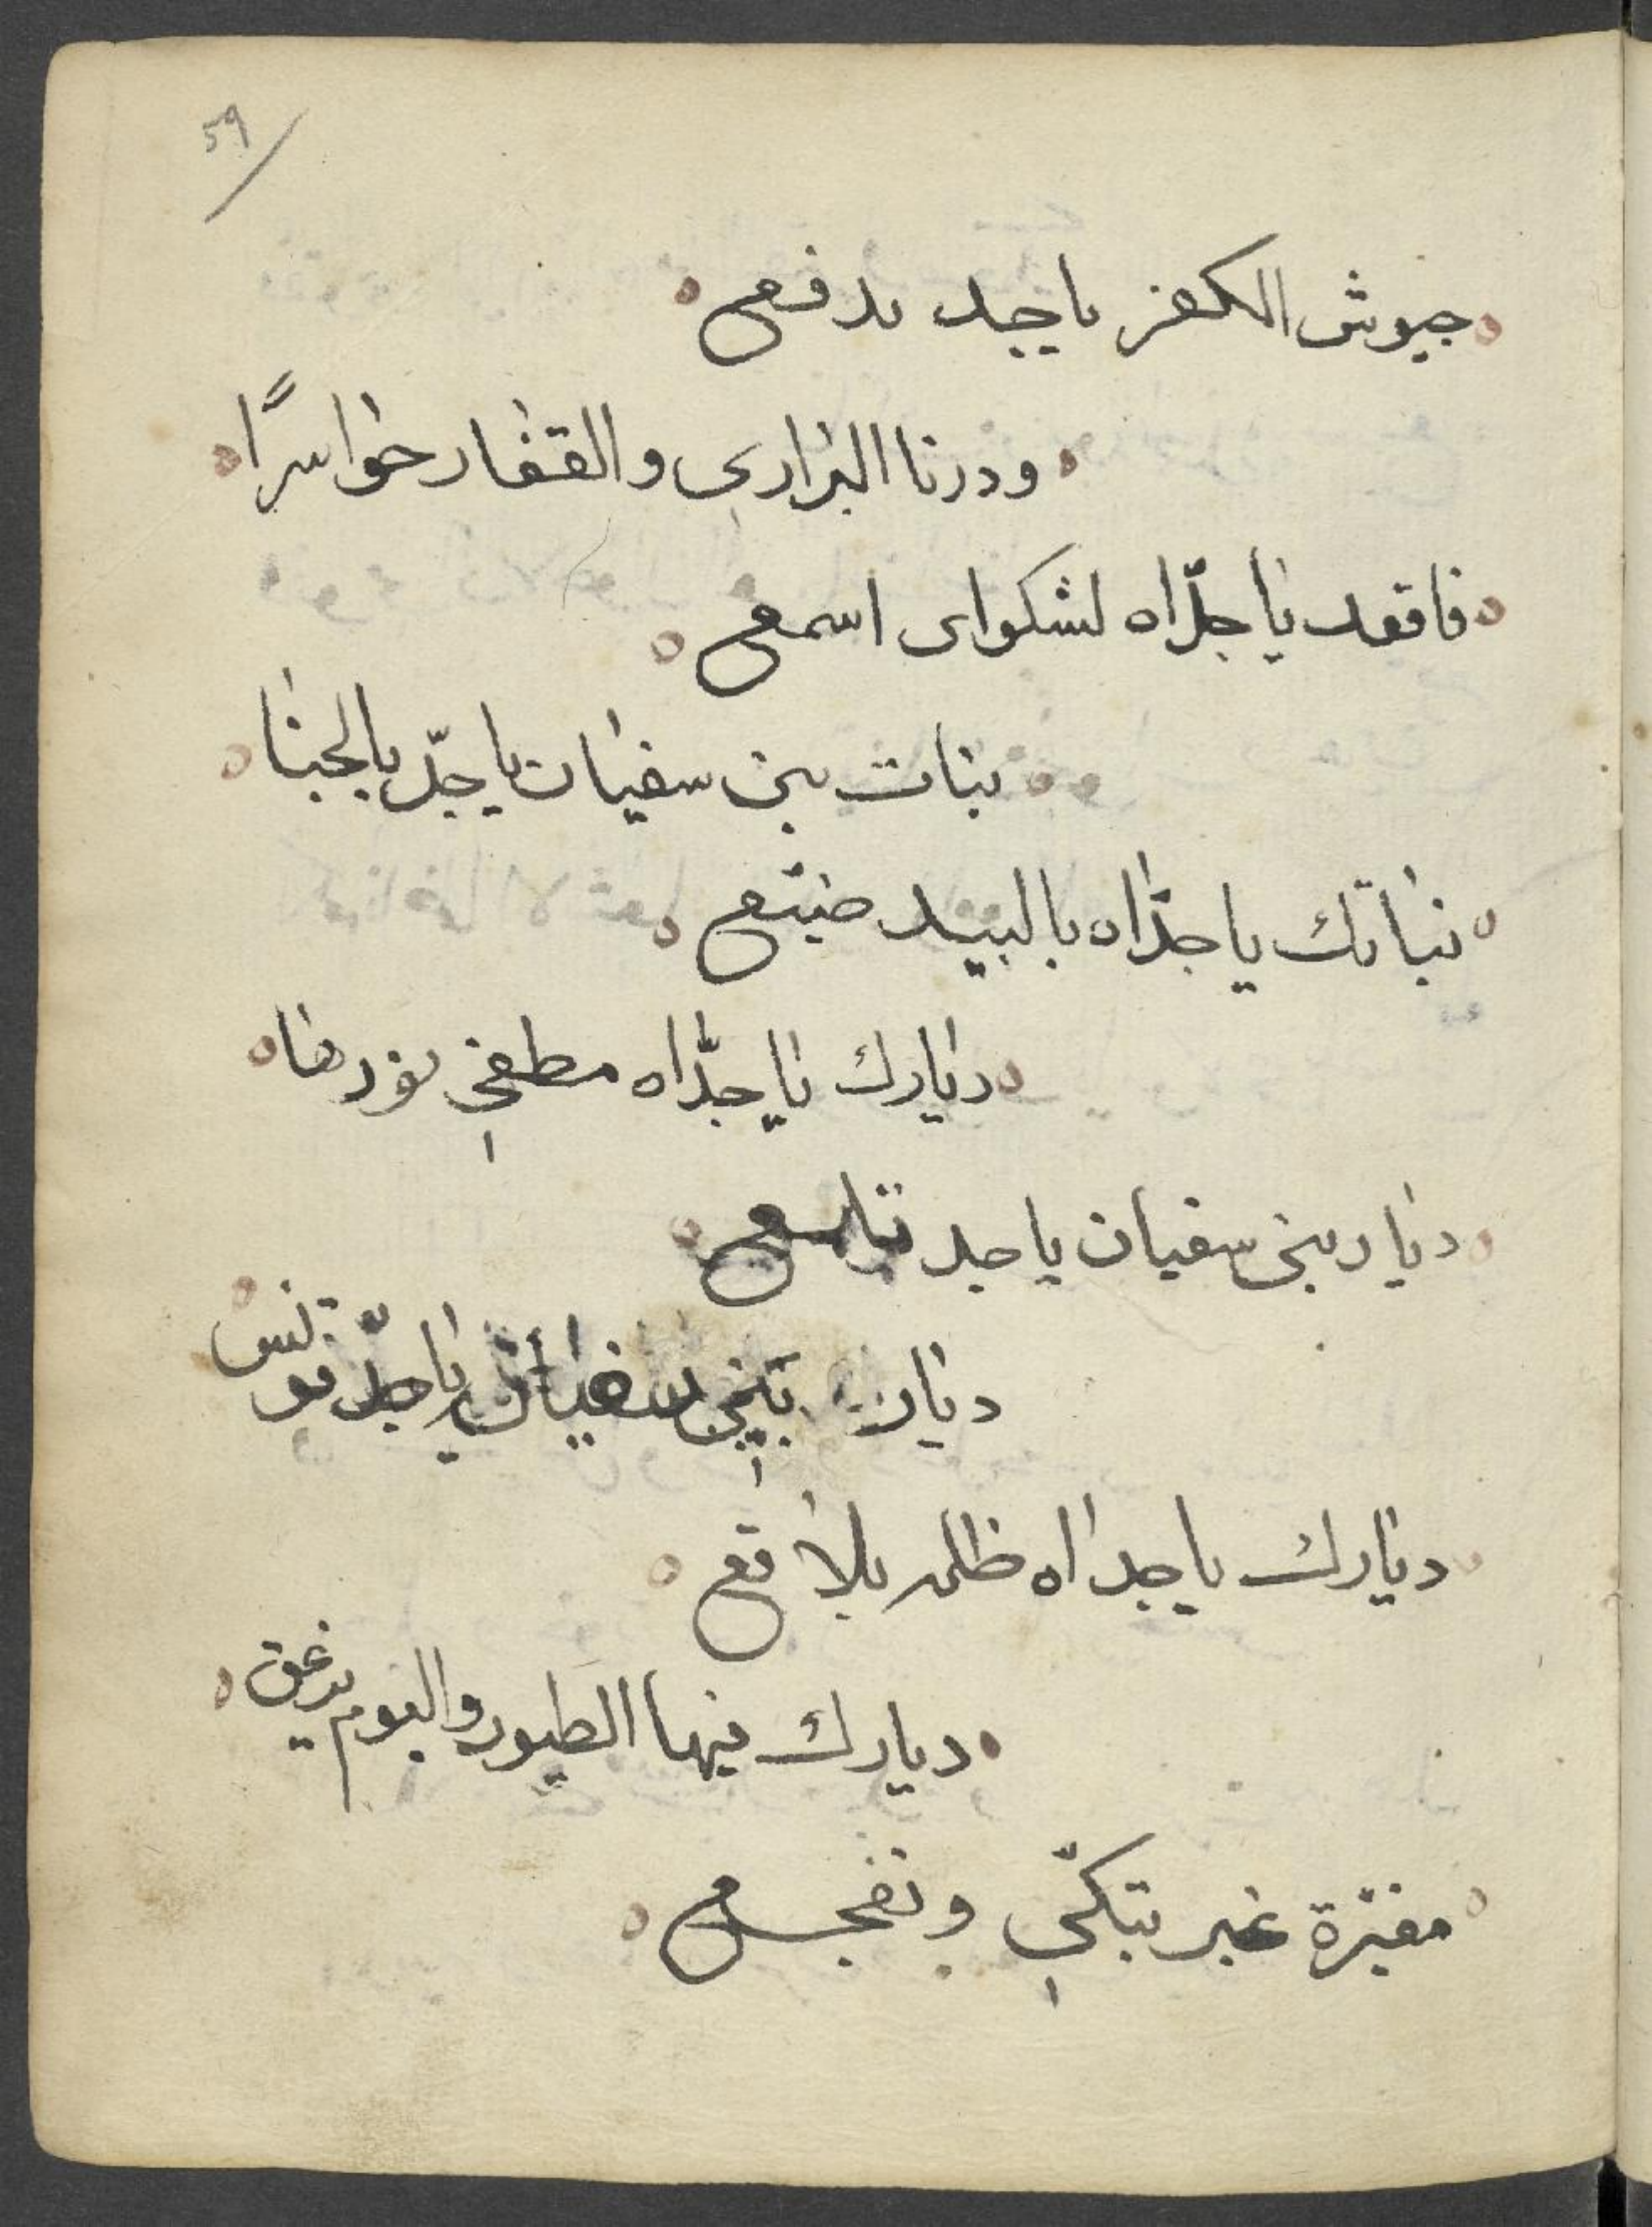 59
جيوش الكفر يا جد تدفع
ودرنا البراري والقفار حواسرًا
فاقعد يا جدّاه لشكواي اسمع
بنات بني سفيان يا جدّ بالخبا
بناتك يا جدّاه بالبيد ضيّع
ديارك يا جدّاه مطفي نورها
ديار بني سفيان يا جد تلمع
ديار بني سفيان يا جدّ تونس
ديارك يا جداه ظلت بلاقع
ديارك فيها الطيور والبوم يزعق
مغبّرة غير تبكّي وتفجع